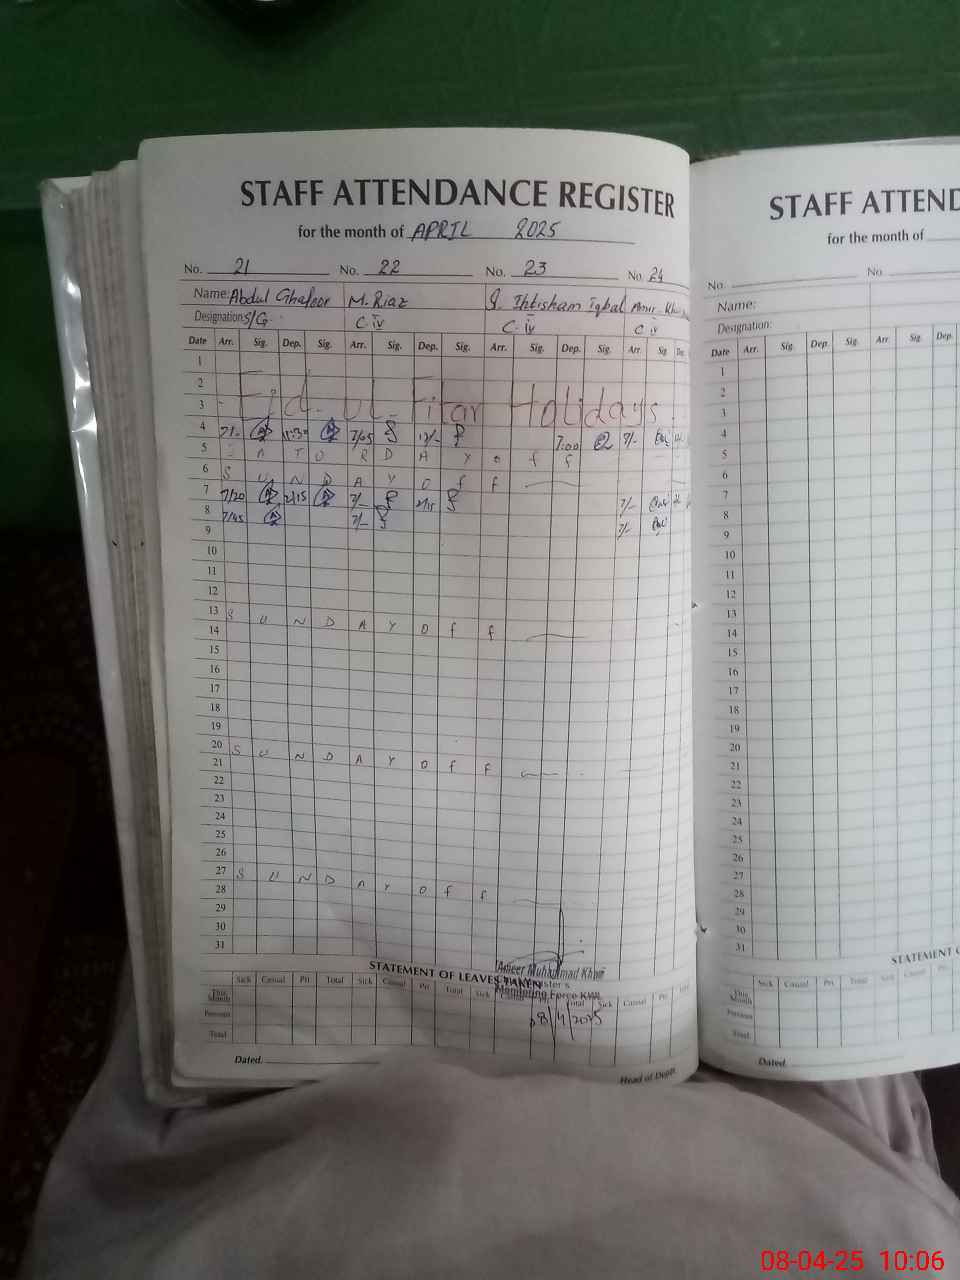 STAFF ATTENDANCE REGISTER
for the month of APRIL 2025
No. 21 No. 22 No. 23 No. 24
Name: Abdul Ghafoor M. Riaz S. Ihtisham Iqbal Amir
Designation: S/G C.iv C.iv C iv
Date Arr. Sig. Dep. Sig. Arr. Sig. Dep. Sig. Arr. Sig. Dep. Sig. Arr. Sig. Dep.
1
2
3 Eid-ul-Fitar Holidays
4 7/- 7/05 12/- 7:00 7/-
5 SATURDAY off
6 SUNDAY Off
7 7/20 2/15 7/- 2/15 7/-
8 7/45 7/- 7/-
9
10
11
12
13 SUNDAY Off
14
15
16
17
18
19
20 SUNDAY Off
21
22
23
24
25
26
27 SUNDAY Off
28
29
30
31
STATEMENT OF LEAVES TAKEN
Ameer Muhammad Khan
Monitoring Force
Sick Casual Pri Total Sick Casual Pri Total Sick Total Sick Casual Pri Total
This Month
Previous
Total
08/4/2025
Dated.
Head of Deptt.
STAFF ATTEND
for the month of
No. No.
Name:
Designation:
Date Arr. Sig. Dep. Sig. Arr. Sig. Dep.
1
2
3
4
5
6
7
8
9
10
11
12
13
14
15
16
17
18
19
20
21
22
23
24
25
26
27
28
29
30
31
STATEMENT O
Sick Casual Pri Total Sick Casual Pri
This Month
Previous
Total
Dated.
08-04-25 10:06